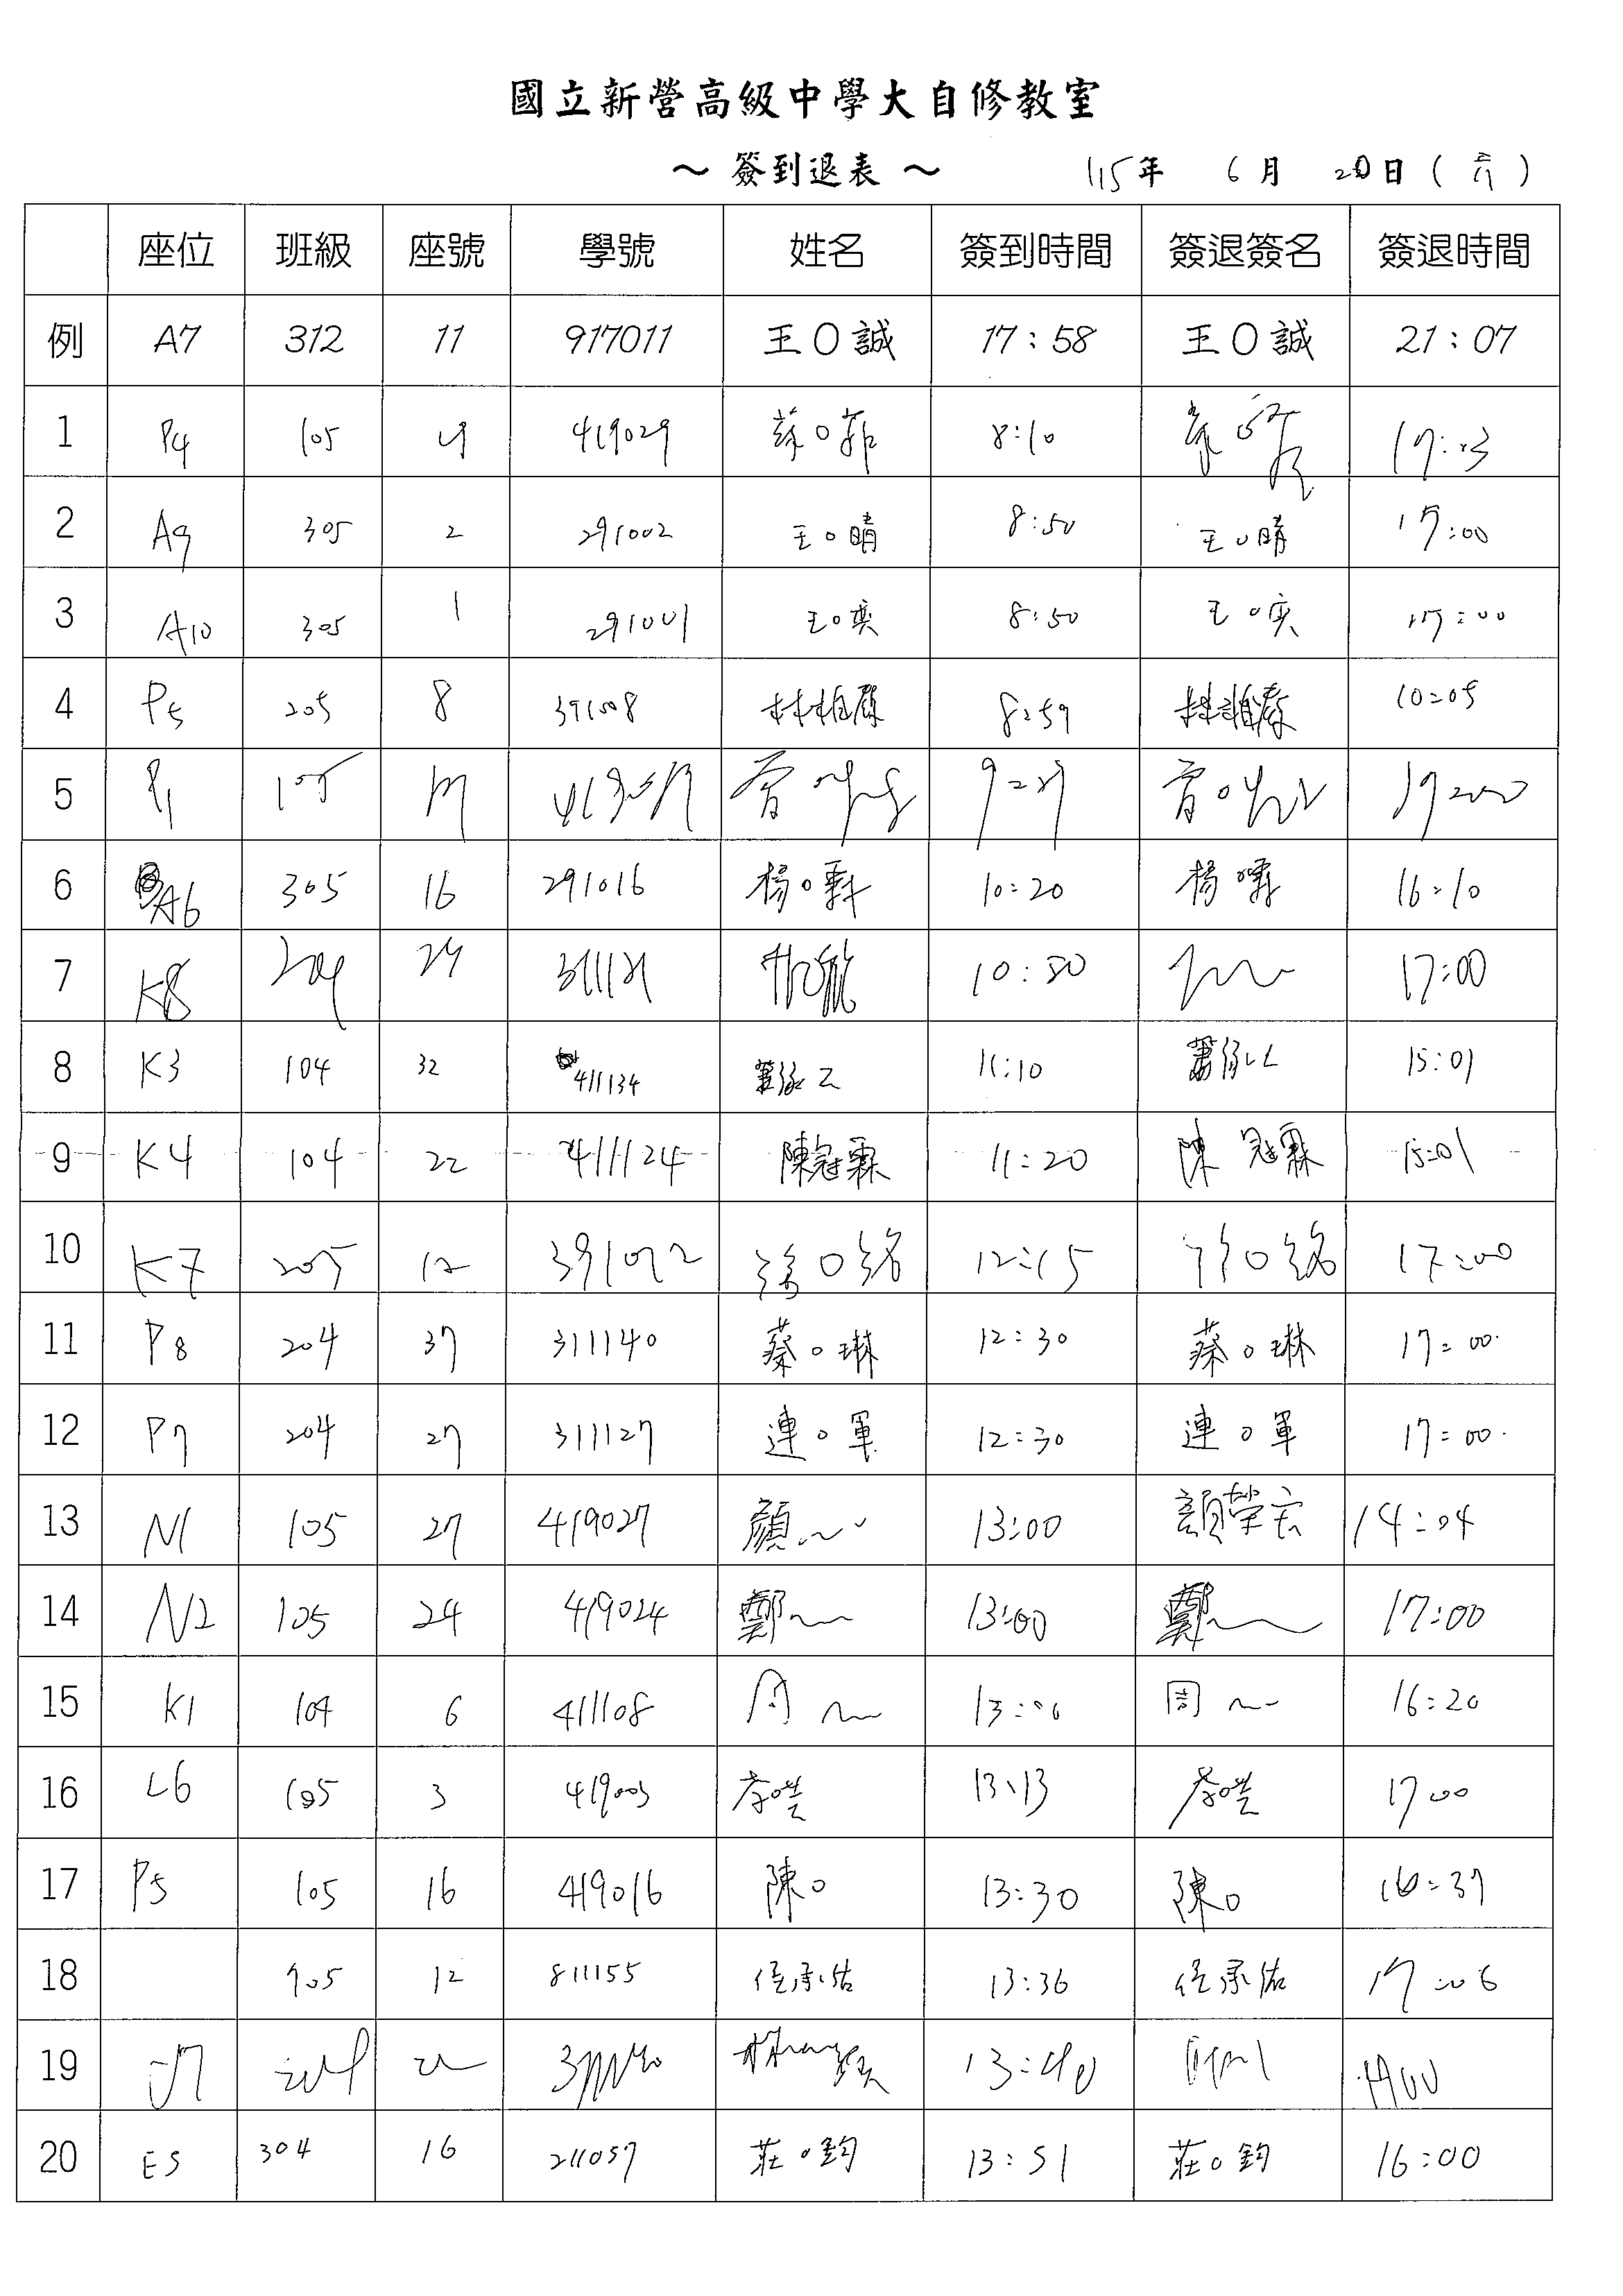 國立新營高級中學大自修教室
～ 簽到退表 ～ 115年 6月 20日(六)
座位 班級 座號 學號 姓名 簽到時間 簽退簽名 簽退時間
例 A7 312 11 917011 王O誠 17:58 王O誠 21:07
1 P4 105 419029 蘇O菲 8:10 17:03
2 A9 305 2 291002 王O晴 8:50 王O晴 17:00
3 A10 305 1 291001 王O奕 8:50 王O奕 17:00
4 P5 205 8 391008 8:59 10:05
5 P1 105
6 A6 305 16 291016 楊O霖 10:20 楊O霖 16:10
7 K8 204 10:50 17:00
8 K3 104 32 411134 11:10 15:01
9 K4 104 22 411124 陳冠霖 11:20 陳冠霖 15:01
10 K7 205 12 391012 徐O銘 12:15 徐O銘 17:00
11 P8 204 37 311140 蔡O琳 12:30 蔡O琳 17:00
12 P7 204 27 311127 連O軍 12:30 連O軍 17:00
13 N1 105 27 419027 顏 13:00 顏榮宏 14:04
14 N2 105 24 419024 鄭 13:00 鄭 17:00
15 K1 104 6 411108 周 13:00 周 16:20
16 L6 105 3 419003 13:13 17:00
17 P5 105 16 419016 陳O 13:30 陳O 16:37
18 905 12 811155 任承佑 13:36 任承佑 17:06
19 13:40
20 E5 304 16 211057 莊O鈞 13:51 莊O鈞 16:00